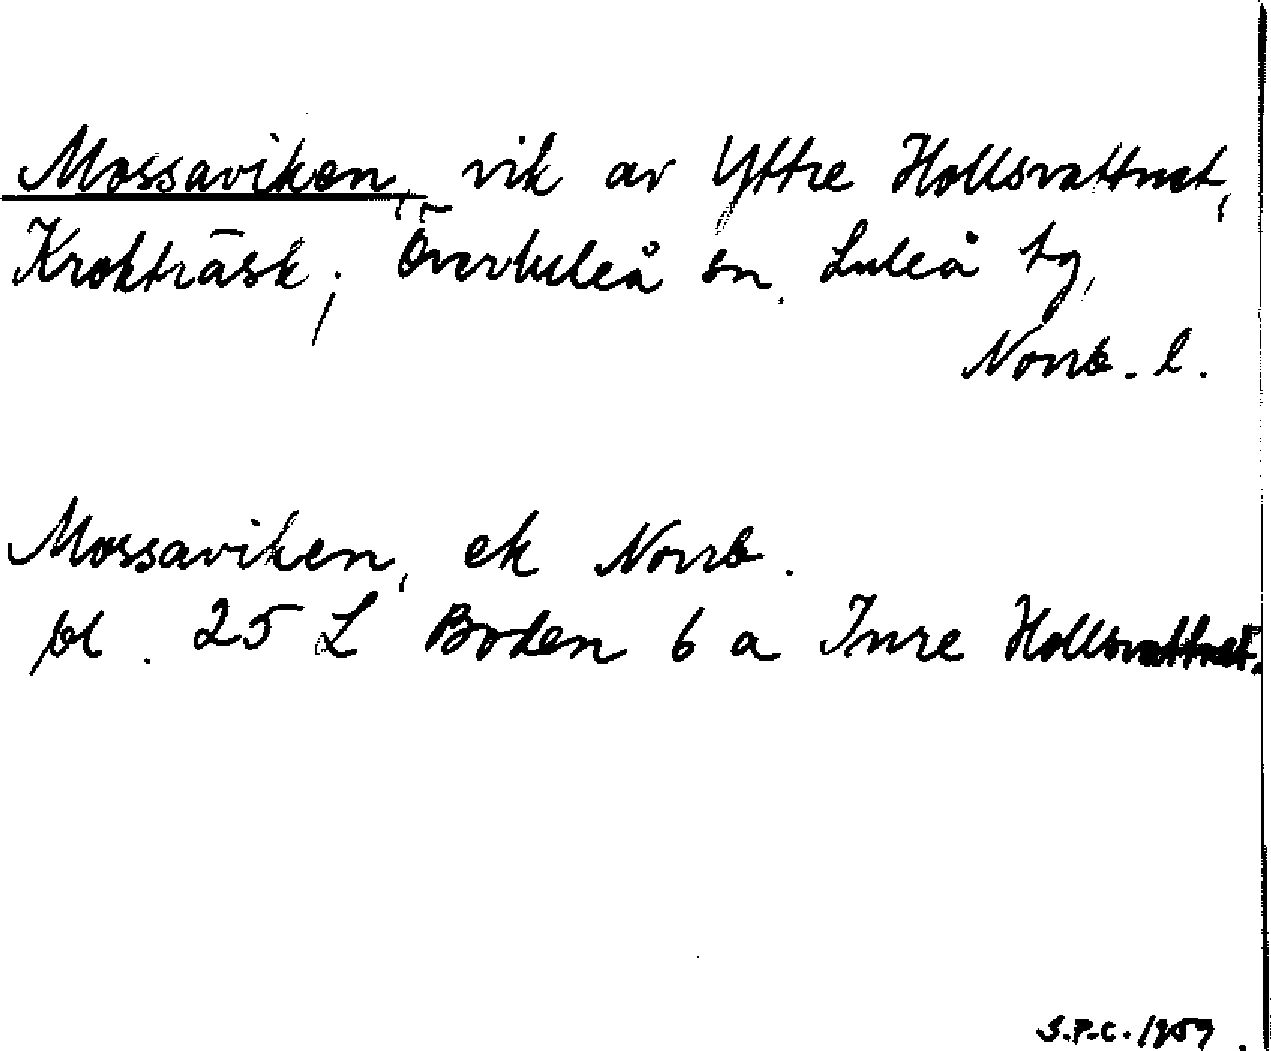 Mossaviken, vik av Yttre Hollsvattnet,
Krokträsk, Överluleå sn, Luleå tg,
Norrb. l.
Mossaviken, ek Norrb.
bl. 25 L Boden 6 a Inre Hollsvattnet.
S.P.C. 1959.